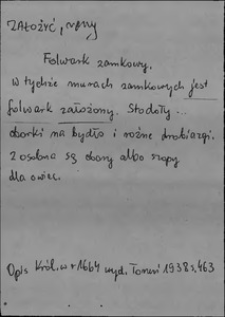 ZAŁOŻYĆ,
Folwark zamkowy.
W tychże murach zamkowych jest
folwark założony. Stodoły ...
oborki na bydło i rożne drobiazgi.
Z osobna są obory albo szopy
dla owiec.
Opis Król. w r 1664 wyd. Toruń 1938 s. 463